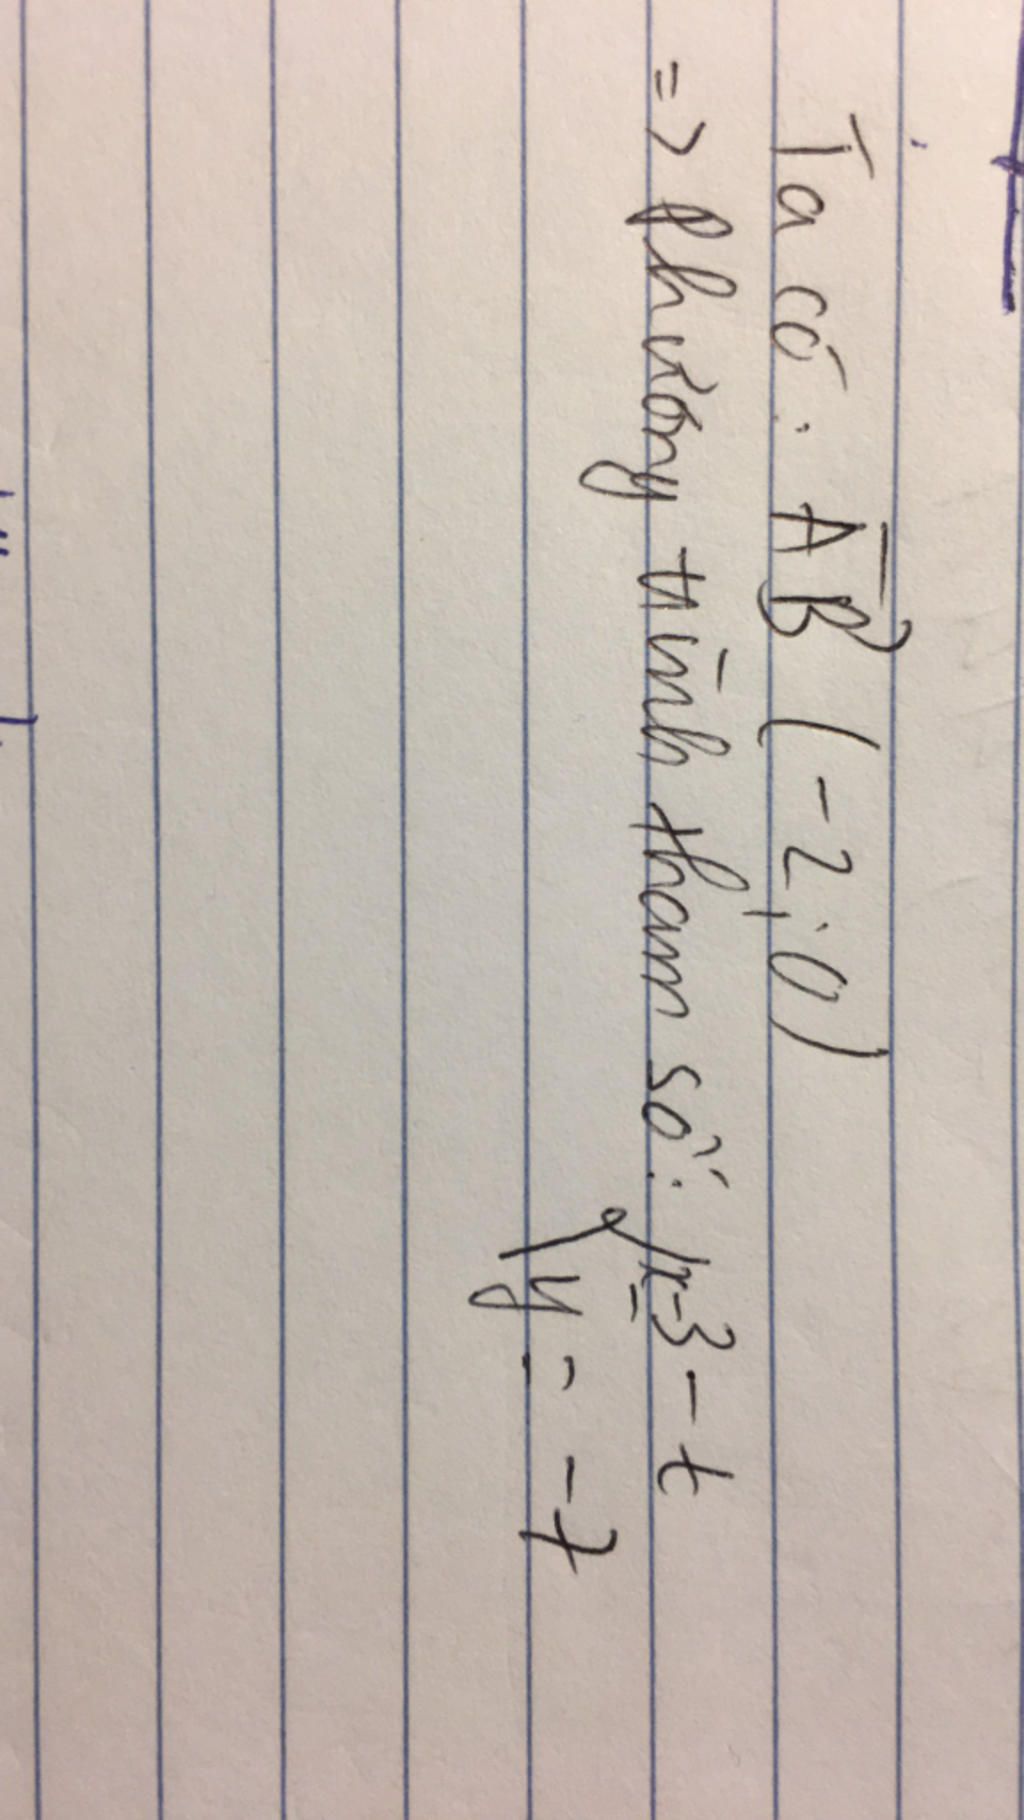 Ta có: AB (-2; 0)
=> phương trình tham số: { x = 3 - t
y = -7